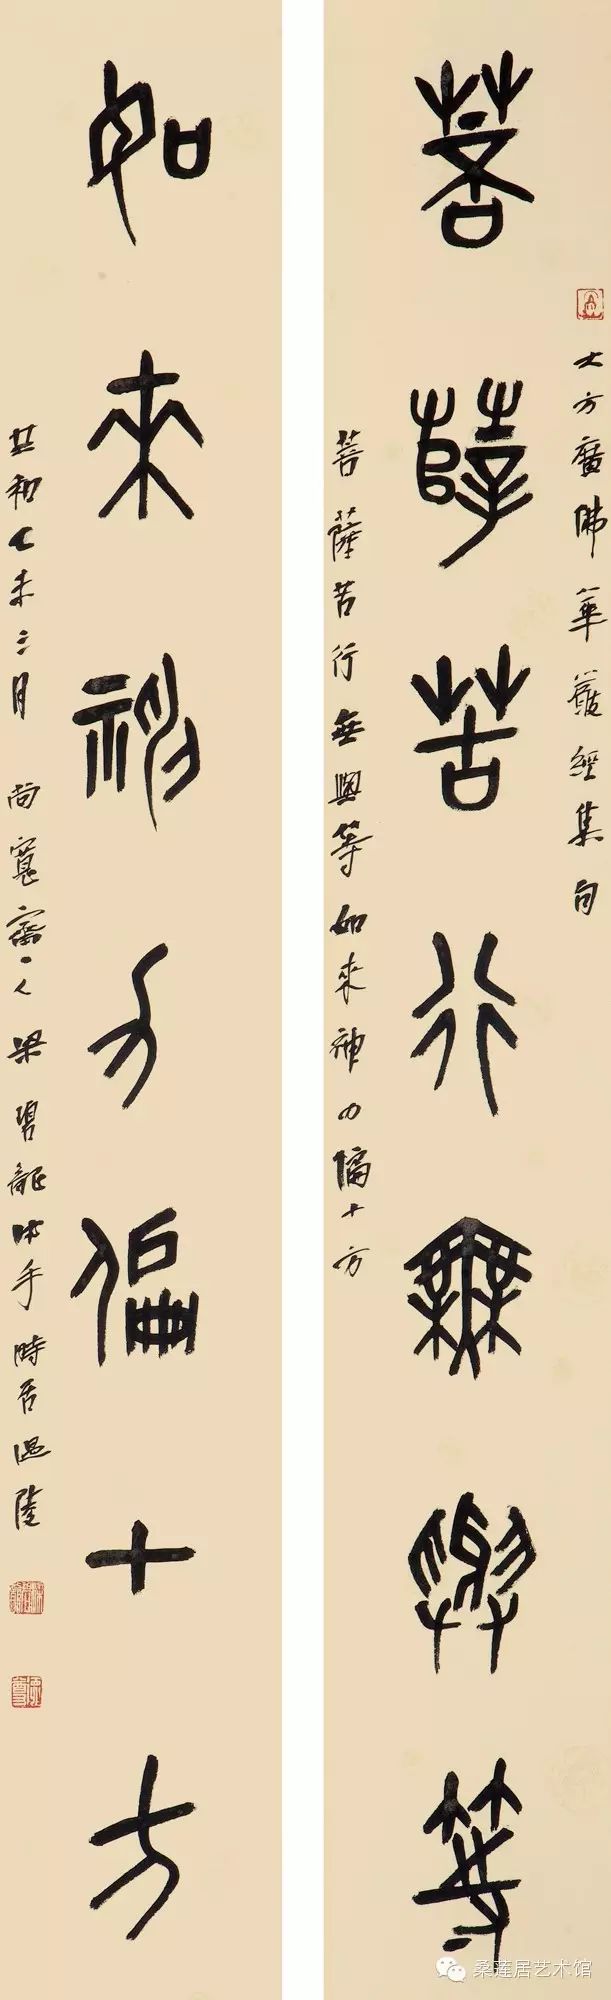 大方廣佛華嚴經集句
菩薩苦行無與等
菩薩苦行無與等如來神力徧十方
如來神力徧十方
共和乙未三月 尚寬齋人 梁碧龍沐手時居溫陵
桑莲居艺术馆